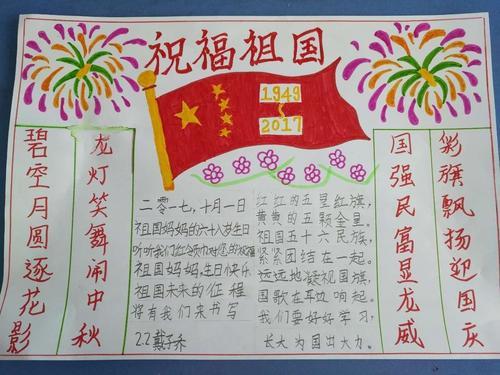 祝福祖国
1949
2017
碧空月圆逐花影
龙灯笑舞闹中秋
二零一七,十月一日
祖国妈妈的六十八岁生日
听听我们红领巾对您的祝福
祖国妈妈,生日快乐
祖国未来的征程
将有我们来书写
2.2戴子
红红的五星红旗,
黄黄的五颗金星。
祖国五十六民族,
紧紧团结在一起。
远远地凝视国旗,
国歌在耳边响起。
我们要好好学习,
长大为国出大力。
国强民富显龙威
彩旗飘扬迎国庆